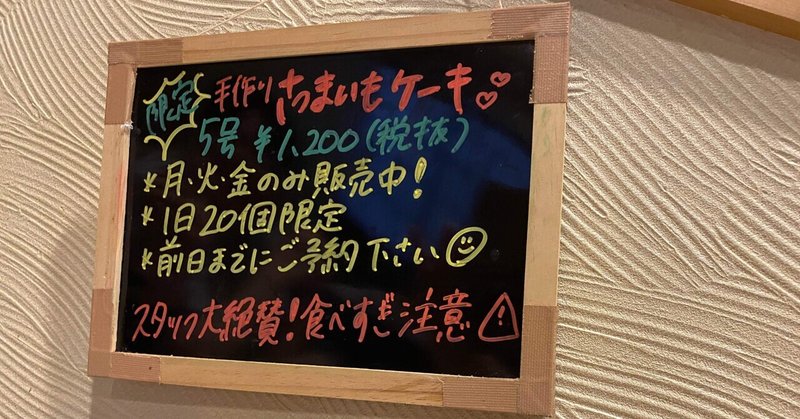 限定 手作り さつまいもケーキ♡♡
5号 ¥1,200(税抜)
*月・火・金のみ販売中!
*1日20個限定
*前日までにご予約下さい☺
スタッフ大絶賛!食べすぎ注意⚠